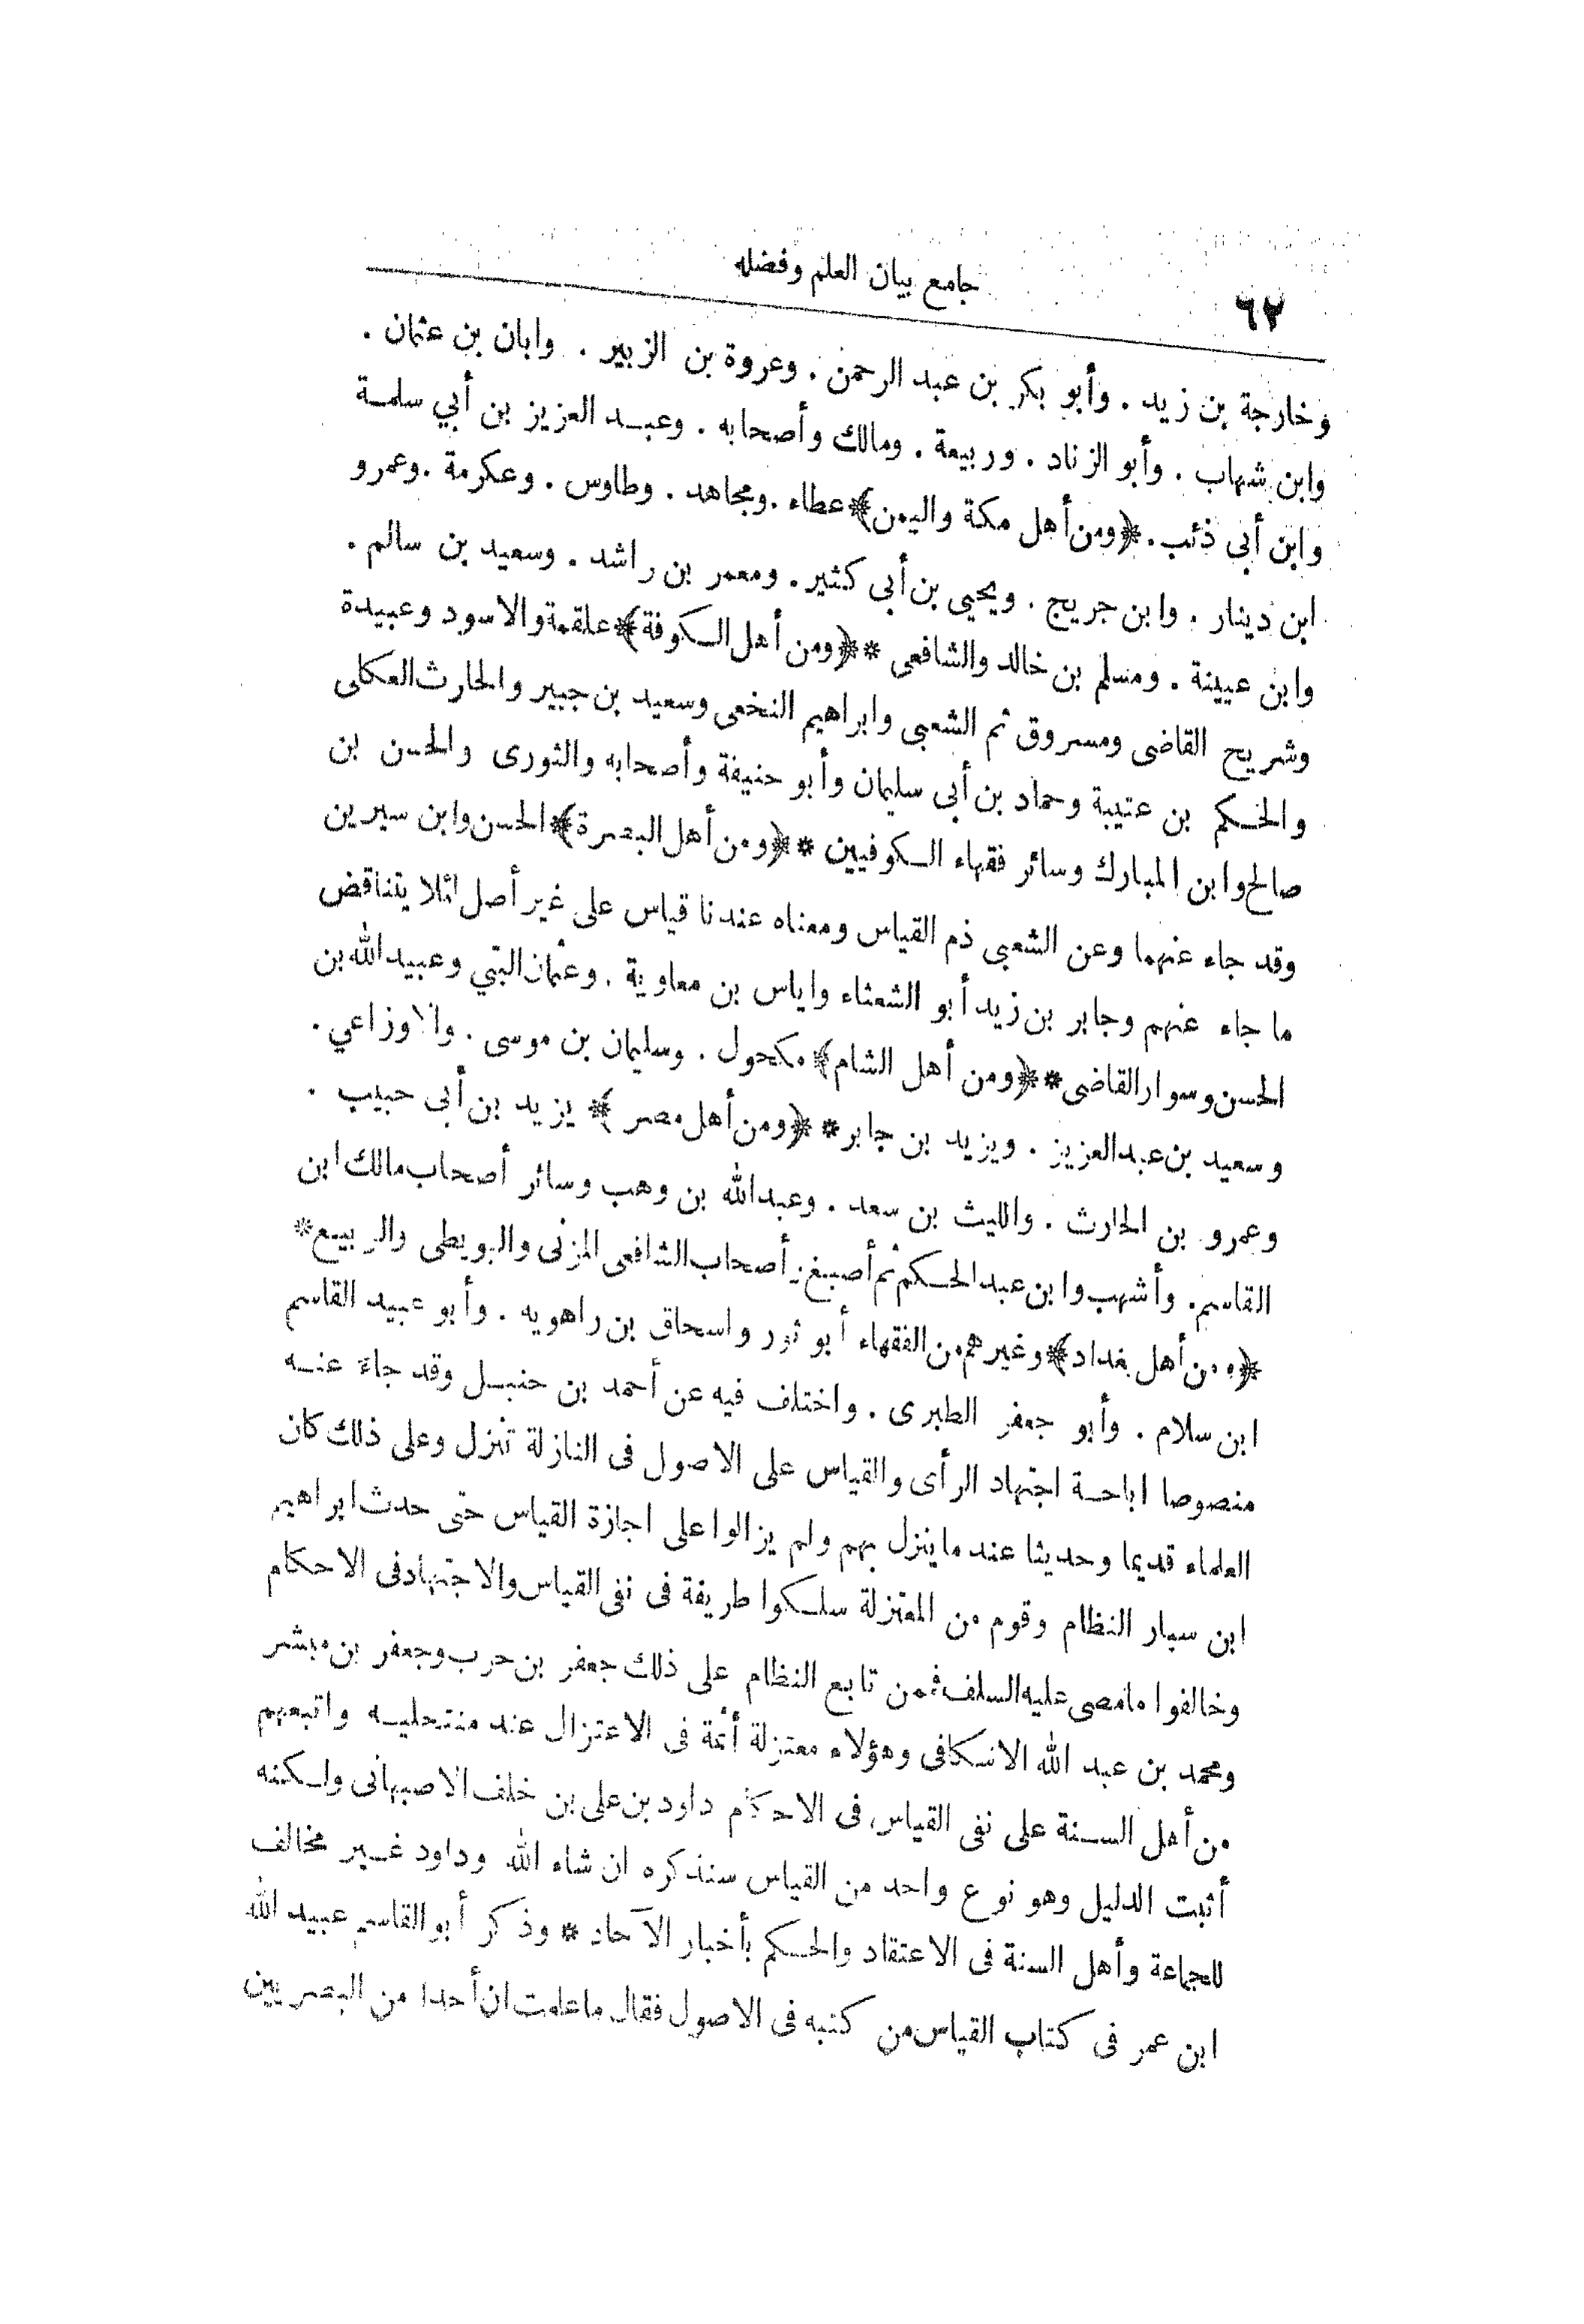 جامع بيان العلم وفضله
٦٢
وخارجة بن زيد . وأبو بكر بن عبد الرحمن . وعروة بن الزبير . وابان بن عثمان .
وابن شهاب . وأبو الزناد . وربيعة . ومالك وأصحابه . وعبد العزيز بن أبي سلمة
وابن أبى ذئب . ﴿ومن أهل مكة واليمن﴾ عطاء . ومجاهد . وطاوس . وعكرمة . وعمرو
ابن دينار . وابن جريج . ويحيى بن أبى كثير . ومعمر بن راشد . وسعيد بن سالم .
وابن عيينة . ومسلم بن خالد والشافعى * ﴿ومن أهل الكوفة﴾ علقمة والاسود وعبيدة
وشريح القاضى ومسروق ثم الشعبى وابراهيم النخعى وسعيد بن جبير والحارث العكلى
والحكم بن عتيبة وحماد بن أبى سليمان وأبو حنيفة وأصحابه والثورى والحسن بن
صالح وابن المبارك وسائر فقهاء الكوفيين * ﴿ومن أهل البصرة﴾ الحسن وابن سيرين
وقد جاء عنهما وعن الشعبى ذم القياس ومعناه عندنا قياس على غير أصل لئلا يتناقض
ما جاء عنهم وجابر بن زيد أبو الشعثاء واياس بن معاوية . وعثمان البتي وعبيد الله بن
الحسن وسوار القاضى * ﴿ومن أهل الشام﴾ مكحول . وسليمان بن موسى . والاوزاعي .
وسعيد بن عبد العزيز . ويزيد بن جابر * ﴿ومن أهل مصر﴾ يزيد بن أبى حبيب .
وعمرو بن الحارث . والليث بن سعد . وعبد الله بن وهب وسائر أصحاب مالك ابن
القاسم . وأشهب وابن عبد الحكم ثم أصبغ . أصحاب الشافعى المزنى والبويطى والربيع *
﴿ومن أهل بغداد﴾ وغيرهم من الفقهاء أبو ثور واسحاق بن راهويه . وأبو عبيد القاسم
ابن سلام . وأبو جعفر الطبرى . واختلف فيه عن أحمد بن حنبل وقد جاء عنه
منصوصا اباحة اجتهاد الرأى والقياس على الاصول فى النازلة تنزل وعلى ذلك كان
العلماء قديما وحديثا عند ما ينزل بهم ولم يزالوا على اجازة القياس حتى حدث ابراهيم
ابن سيار النظام وقوم من المعتزلة سلكوا طريقة فى نفى القياس والاجتهاد فى الاحكام
وخالفوا ما مضى عليه السلف فممن تابع النظام على ذلك جعفر بن حرب وجعفر بن مبشر
ومحمد بن عبد الله الاسكافى وهؤلاء معتزلة أئمة فى الاعتزال عند منتحليه واتبعهم
من أهل السنة على نفى القياس فى الاحكام داود بن على بن خلف الاصبهانى ولكنه
أثبت الدليل وهو نوع واحد من القياس سنذكره ان شاء الله وداود غير مخالف
للجماعة وأهل السنة فى الاعتقاد والحكم بأخبار الآحاد * وذكر أبو القاسم عبيد الله
ابن عمر فى كتاب القياس من كتبه فى الاصول فقال ما علمت ان أحدا من البصريين